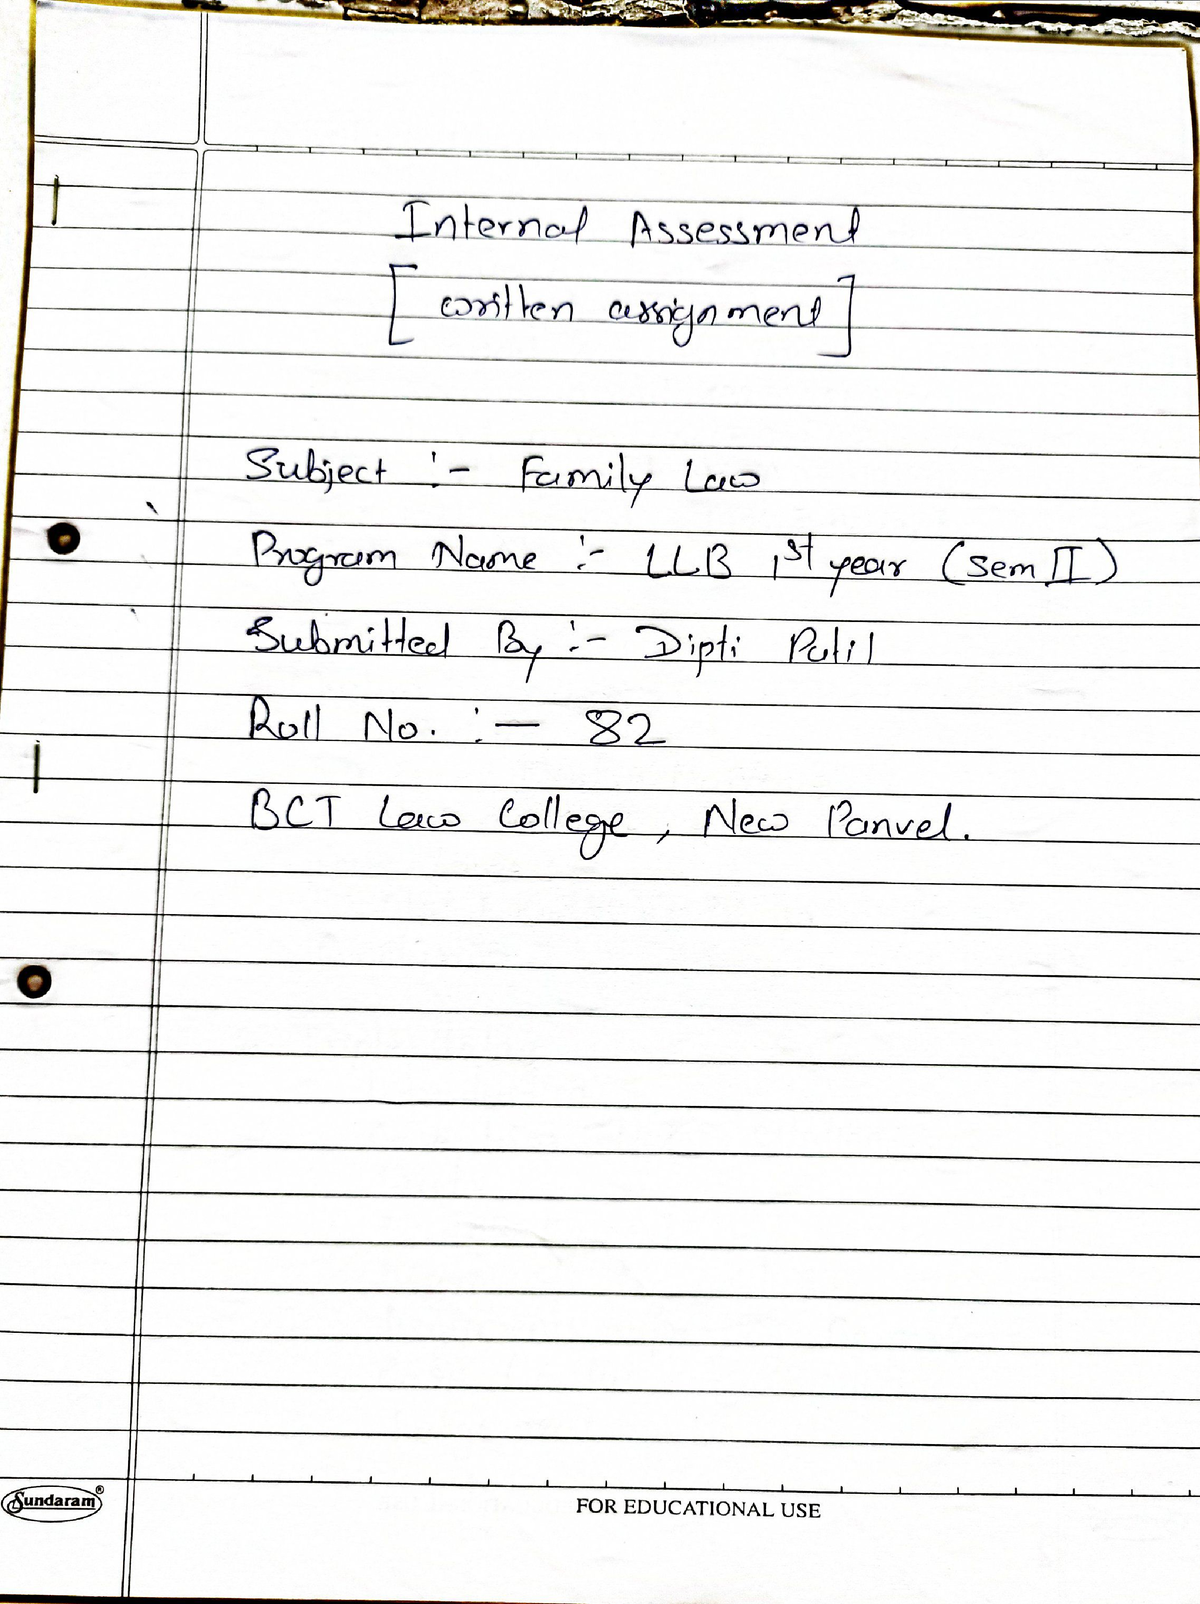 Internal Assessment
[written assignment]
Subject :- Family Law
Program Name :- LLB 1st year (Sem II)
Submitted By :- Dipti Patil
Roll No. :- 82
BCT Law College, New Panvel.
Sundaram®
FOR EDUCATIONAL USE